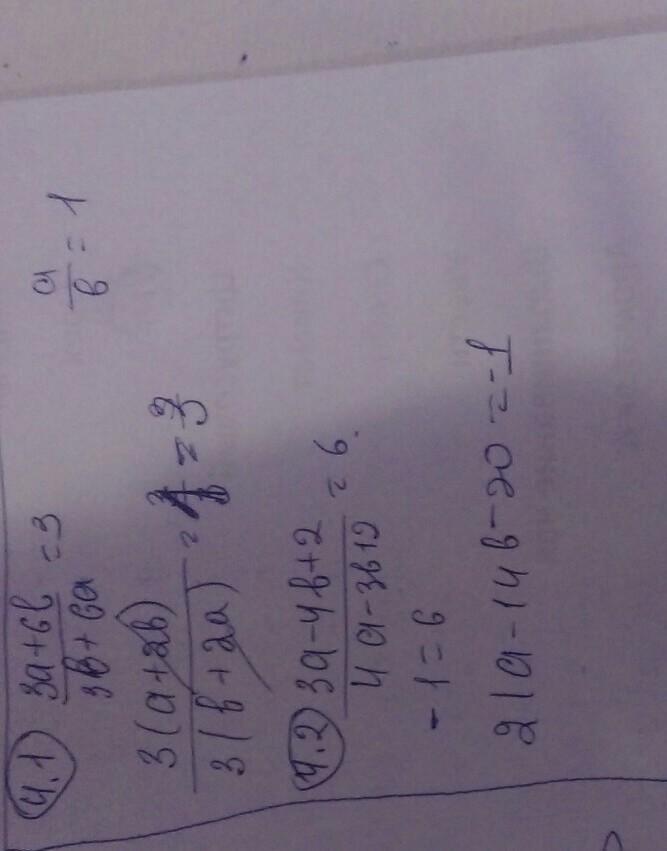 4.1) 3a+6b / 3b+6a = 3    a/b = 1
3(a+2b) / 3(b+2a) = = 3
4.2) 3a-4b+2 / 4a-3b+2 = 6.
-1=6
21a-14b-20=-1